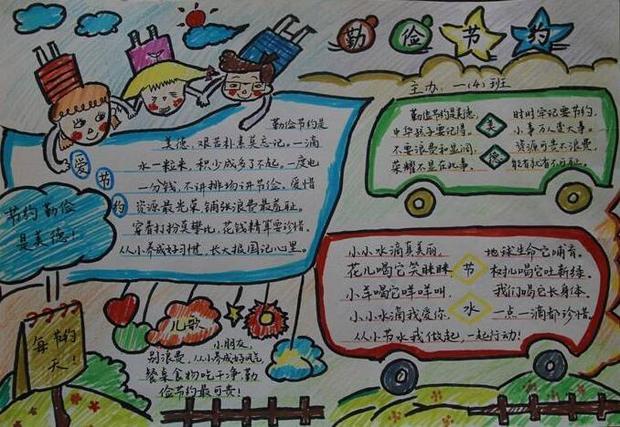 勤 俭 节 约
主办：一(4)班
勤俭节约是
美德，艰苦朴素莫忘记。一滴
水一粒米，积少成多了不起，一度电
一分钱，不讲排场讲节俭，爱惜
资源最光荣 铺张浪费最羞耻。
穿着打扮莫攀比，花钱精算要珍惜
从小养成好习惯，长大报国记心里。
爱 节 约
节约勤俭
是美德！
每节约
一天！
勤俭节约是美德， 时时牢记要节约。
中华孩子要记得。 小事万人变大事。
不要浪费和显阔， 资源可贵不浪费。
荣耀不显在此事。
美
德
小小水滴真美丽， 地球生命它哺育。
花儿喝它笑眯眯
小羊喝它咩咩叫， 我们喝它长身体。
小小水滴我爱你， 一点一滴都珍惜。
从小节水我做起，一起行动！
节
水
儿歌
小朋友，
别浪费，从小养成好风气
餐桌食物吃干净，勤
俭节约最可贵！